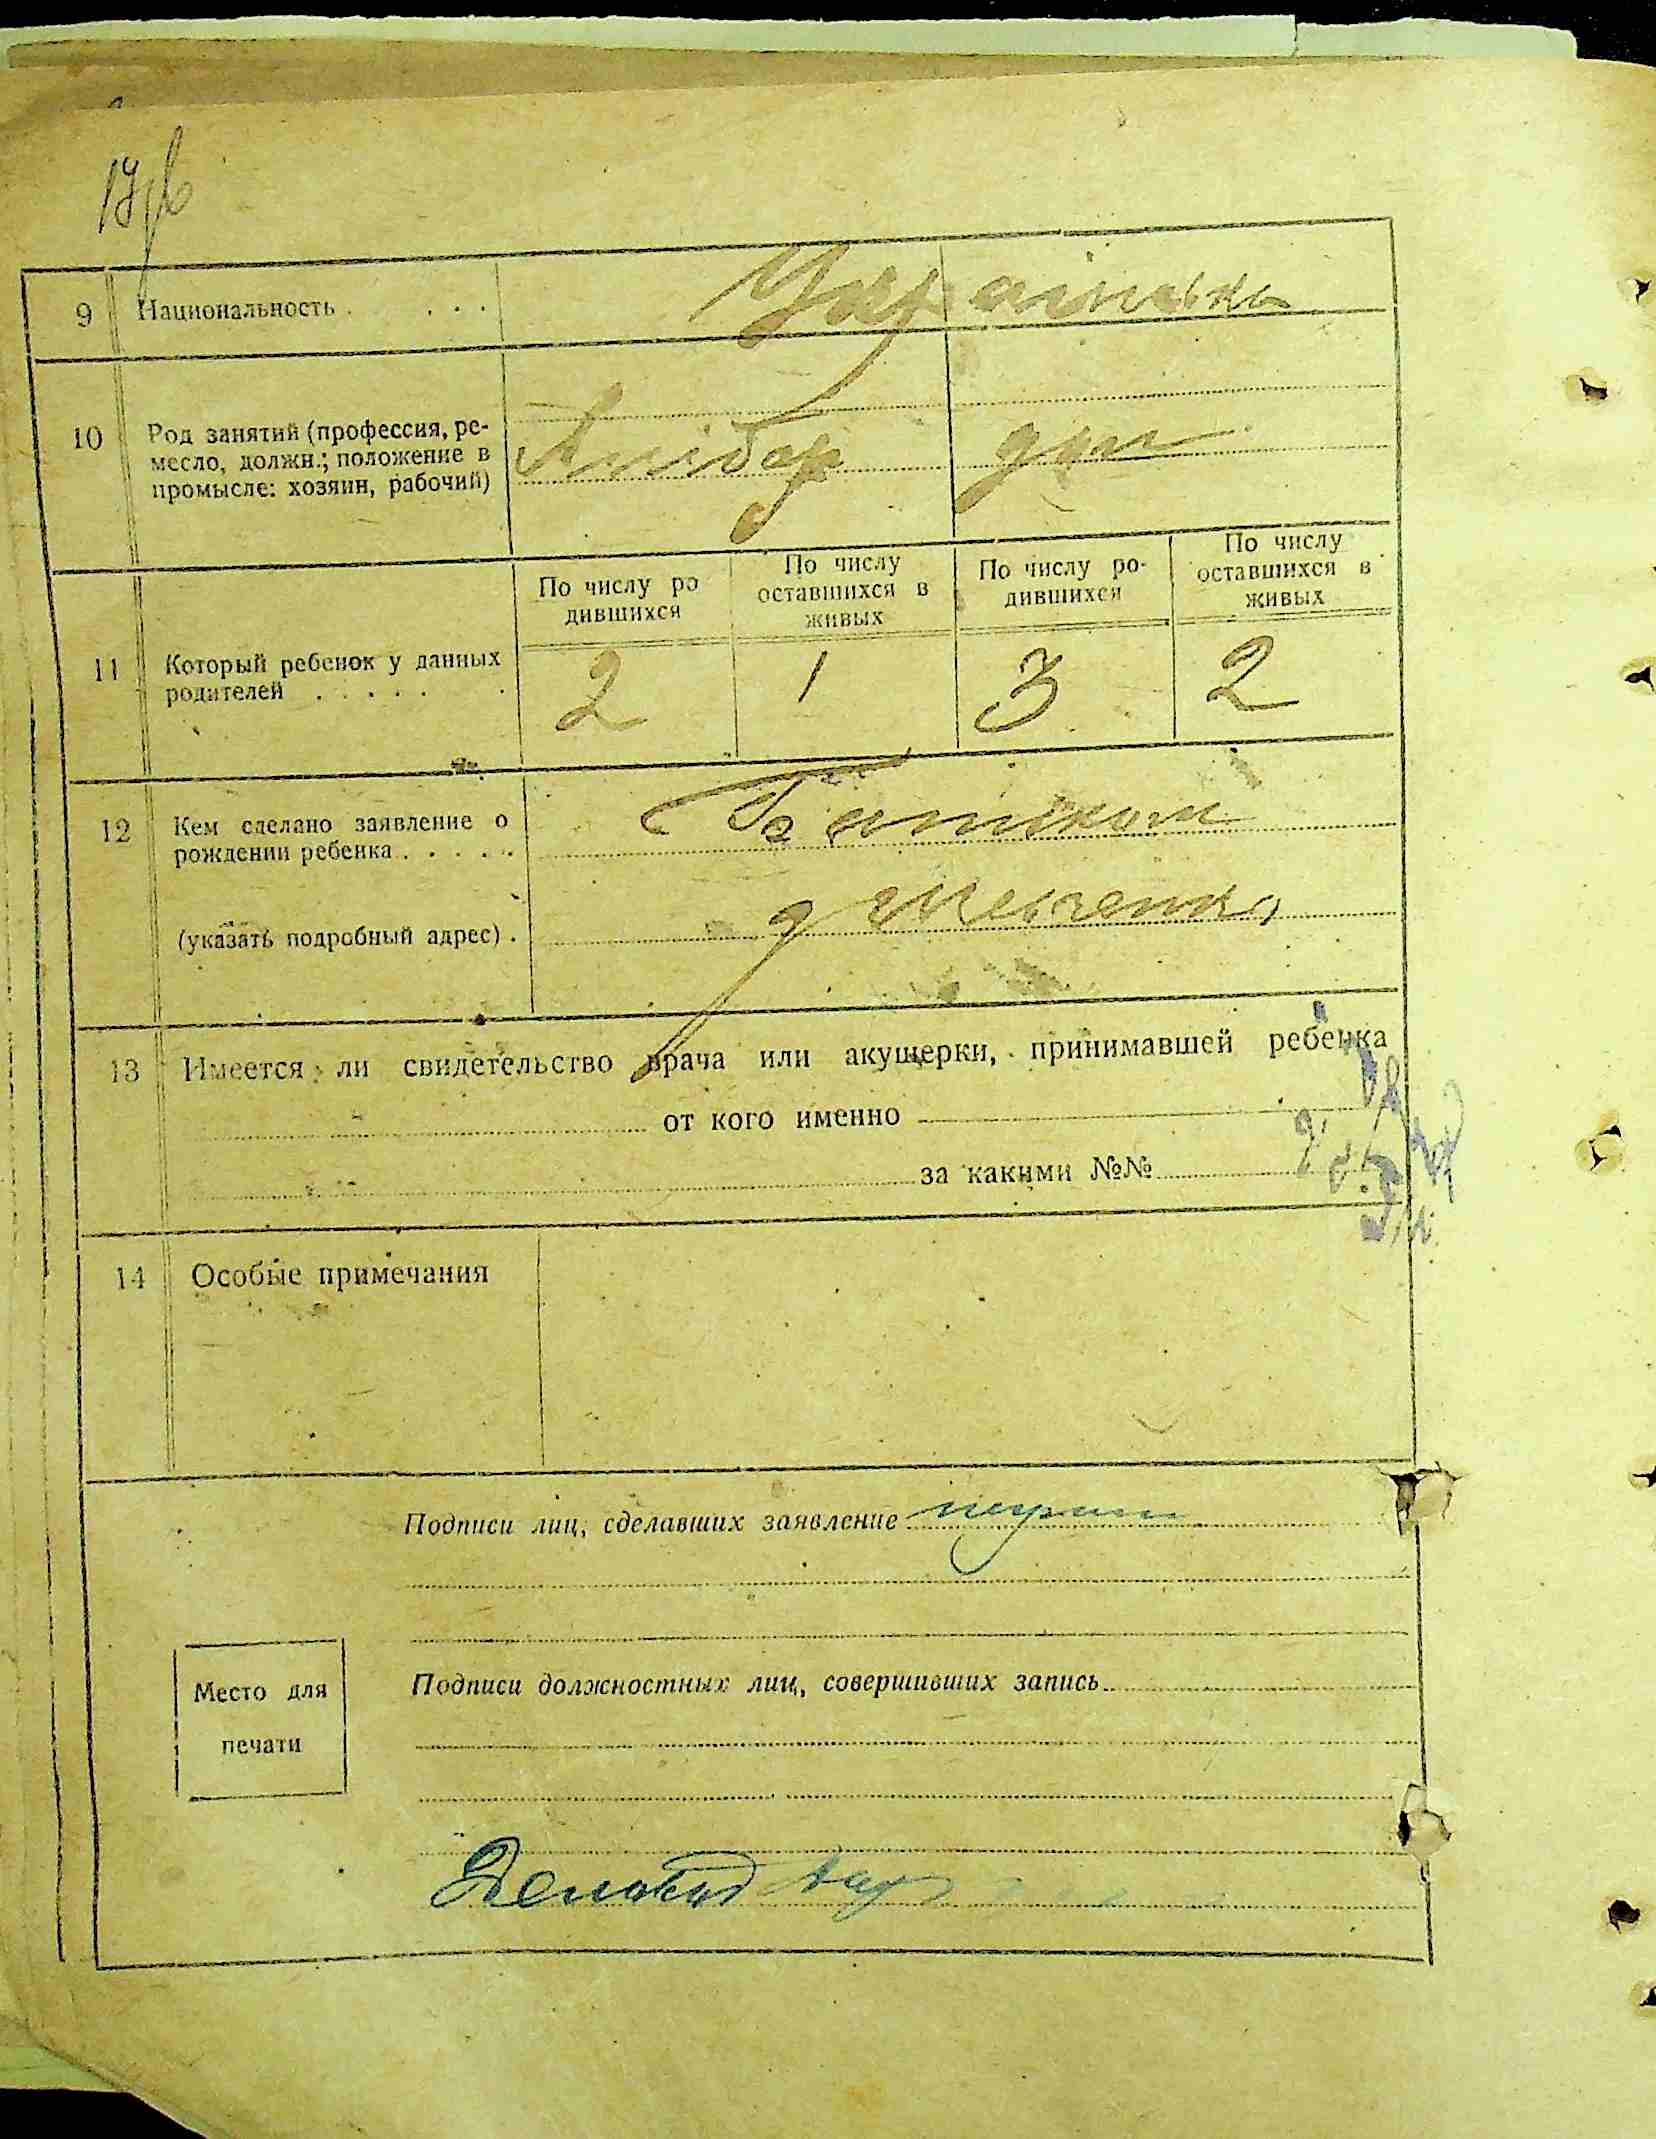 9 Национальность . . . . Українська
10 Род занятий (профессия, ре-
месло, должн.; положение в
промысле: хозяин, рабочий)
По числу ро
дившихся
По числу
оставшихся в
живых
По числу ро-
дившихся
По числу
оставшихся в
живых
11 Который ребенок у данных
родителей . . . . . .
2 1 3 2
12 Кем сделано заявление о
рождении ребенка . . . . .
Батьком
(указать подробный адрес) .
13 Имеется ли свидетельство врача или акушерки, принимавшей ребенка
от кого именно
за какими №№
14 Особые примечания
Подписи лиц, сделавших заявление
Место для
печати
Подписи должностных лиц, совершивших запись